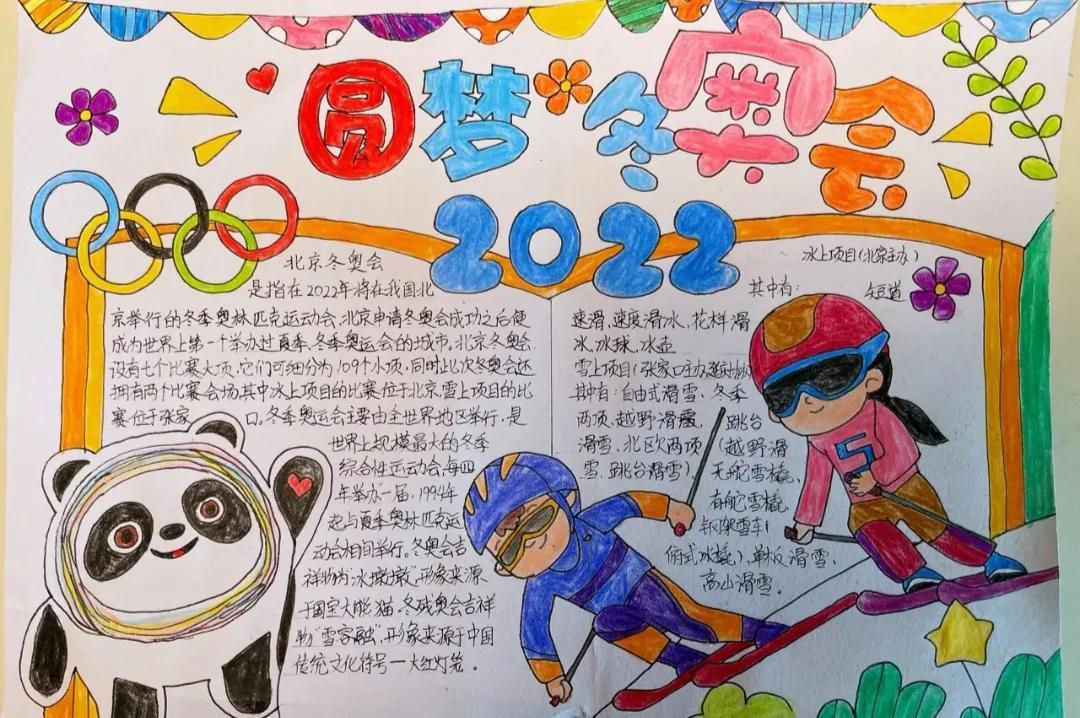 圆梦冬奥会
2022
北京冬奥会
是指在2022年将在我国北
京举行的冬季奥林匹克运动会,北京申请冬奥会成功之后使
成为世界上第一个举办过夏季、冬季奥运会的城市,北京冬奥会
设有七个比赛大项,它们可细分为109个小项,同时此次冬奥会还
拥有两个比赛会场,其中冰上项目的比赛位于北京,雪上项目的比
赛位于张家口。冬季奥运会主要由全世界地区举行,是
世界上规模最大的冬季
综合性运动会,每四
年举办一届,1994年
起与夏季奥林匹克运
动会相间举行。冬奥会吉
祥物为“冰墩墩”,形象来源
于国宝大熊猫。冬残奥会吉祥
物“雪容融”,形象来源于中国
传统文化符号一大红灯笼。
冰上项目(北京主办)
其中有: 短道
速滑,速度滑冰,花样滑
冰,冰球,冰壶
雪上项目(张家口主办
其中有:自由式滑雪、冬季
两项,越野滑雪, 跳台
滑雪、北欧两项 (越野滑
雪、跳台滑雪) 无舵雪橇、
有舵雪橇,
钢架雪车(
俯式冰橇),单板滑雪、
高山滑雪。
5